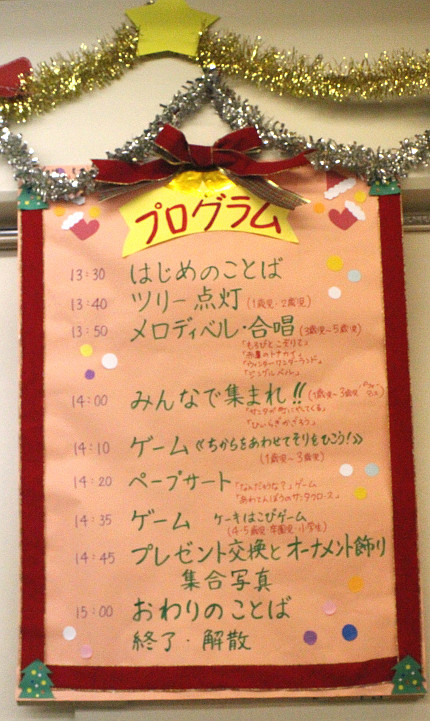 プログラム
13:30 はじめのことば
13:40 ツリー点灯 (1歳児・2歳児)
13:50 メロディベル・合唱 (3歳児～5歳児)
「もろびとこぞりて」
「赤鼻のトナカイ」
「ウィンターワンダーランド」
「ジングルベル」
14:00 みんなで集まれ!! (1歳児～3歳児
「サンタが町にやってくる」
「ひいらぎかざろう」
14:10 ゲーム 《ちからをあわせてそりをひこう!》
(1歳児～3歳児)
14:20 ペープサート 「なんだろうな?」ゲーム
「あわてんぼうのサンタクロース」
14:35 ゲーム ケーキはこびゲーム
(4・5歳児・卒園児・小学生)
14:45 プレゼント交換とオーナメント飾り
集合写真
15:00 おわりのことば
終了・解散